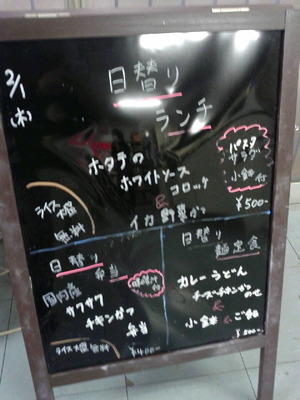 2/1
(木)
日替り
ランチ
ホタテの
ホワイトソース
コロッケ
&
イカ野菜かき
パスタ
サラダ
小鉢付
¥500-
ライス大盛
無料
日替り
弁当
味噌汁付
国内産
サクサク
チキンカツ
弁当
ライス大盛無料
¥400-
日替り
麺定食
カレーうどん
チーズチキンカツ
のせ
&
小鉢 & ご飯
¥500-